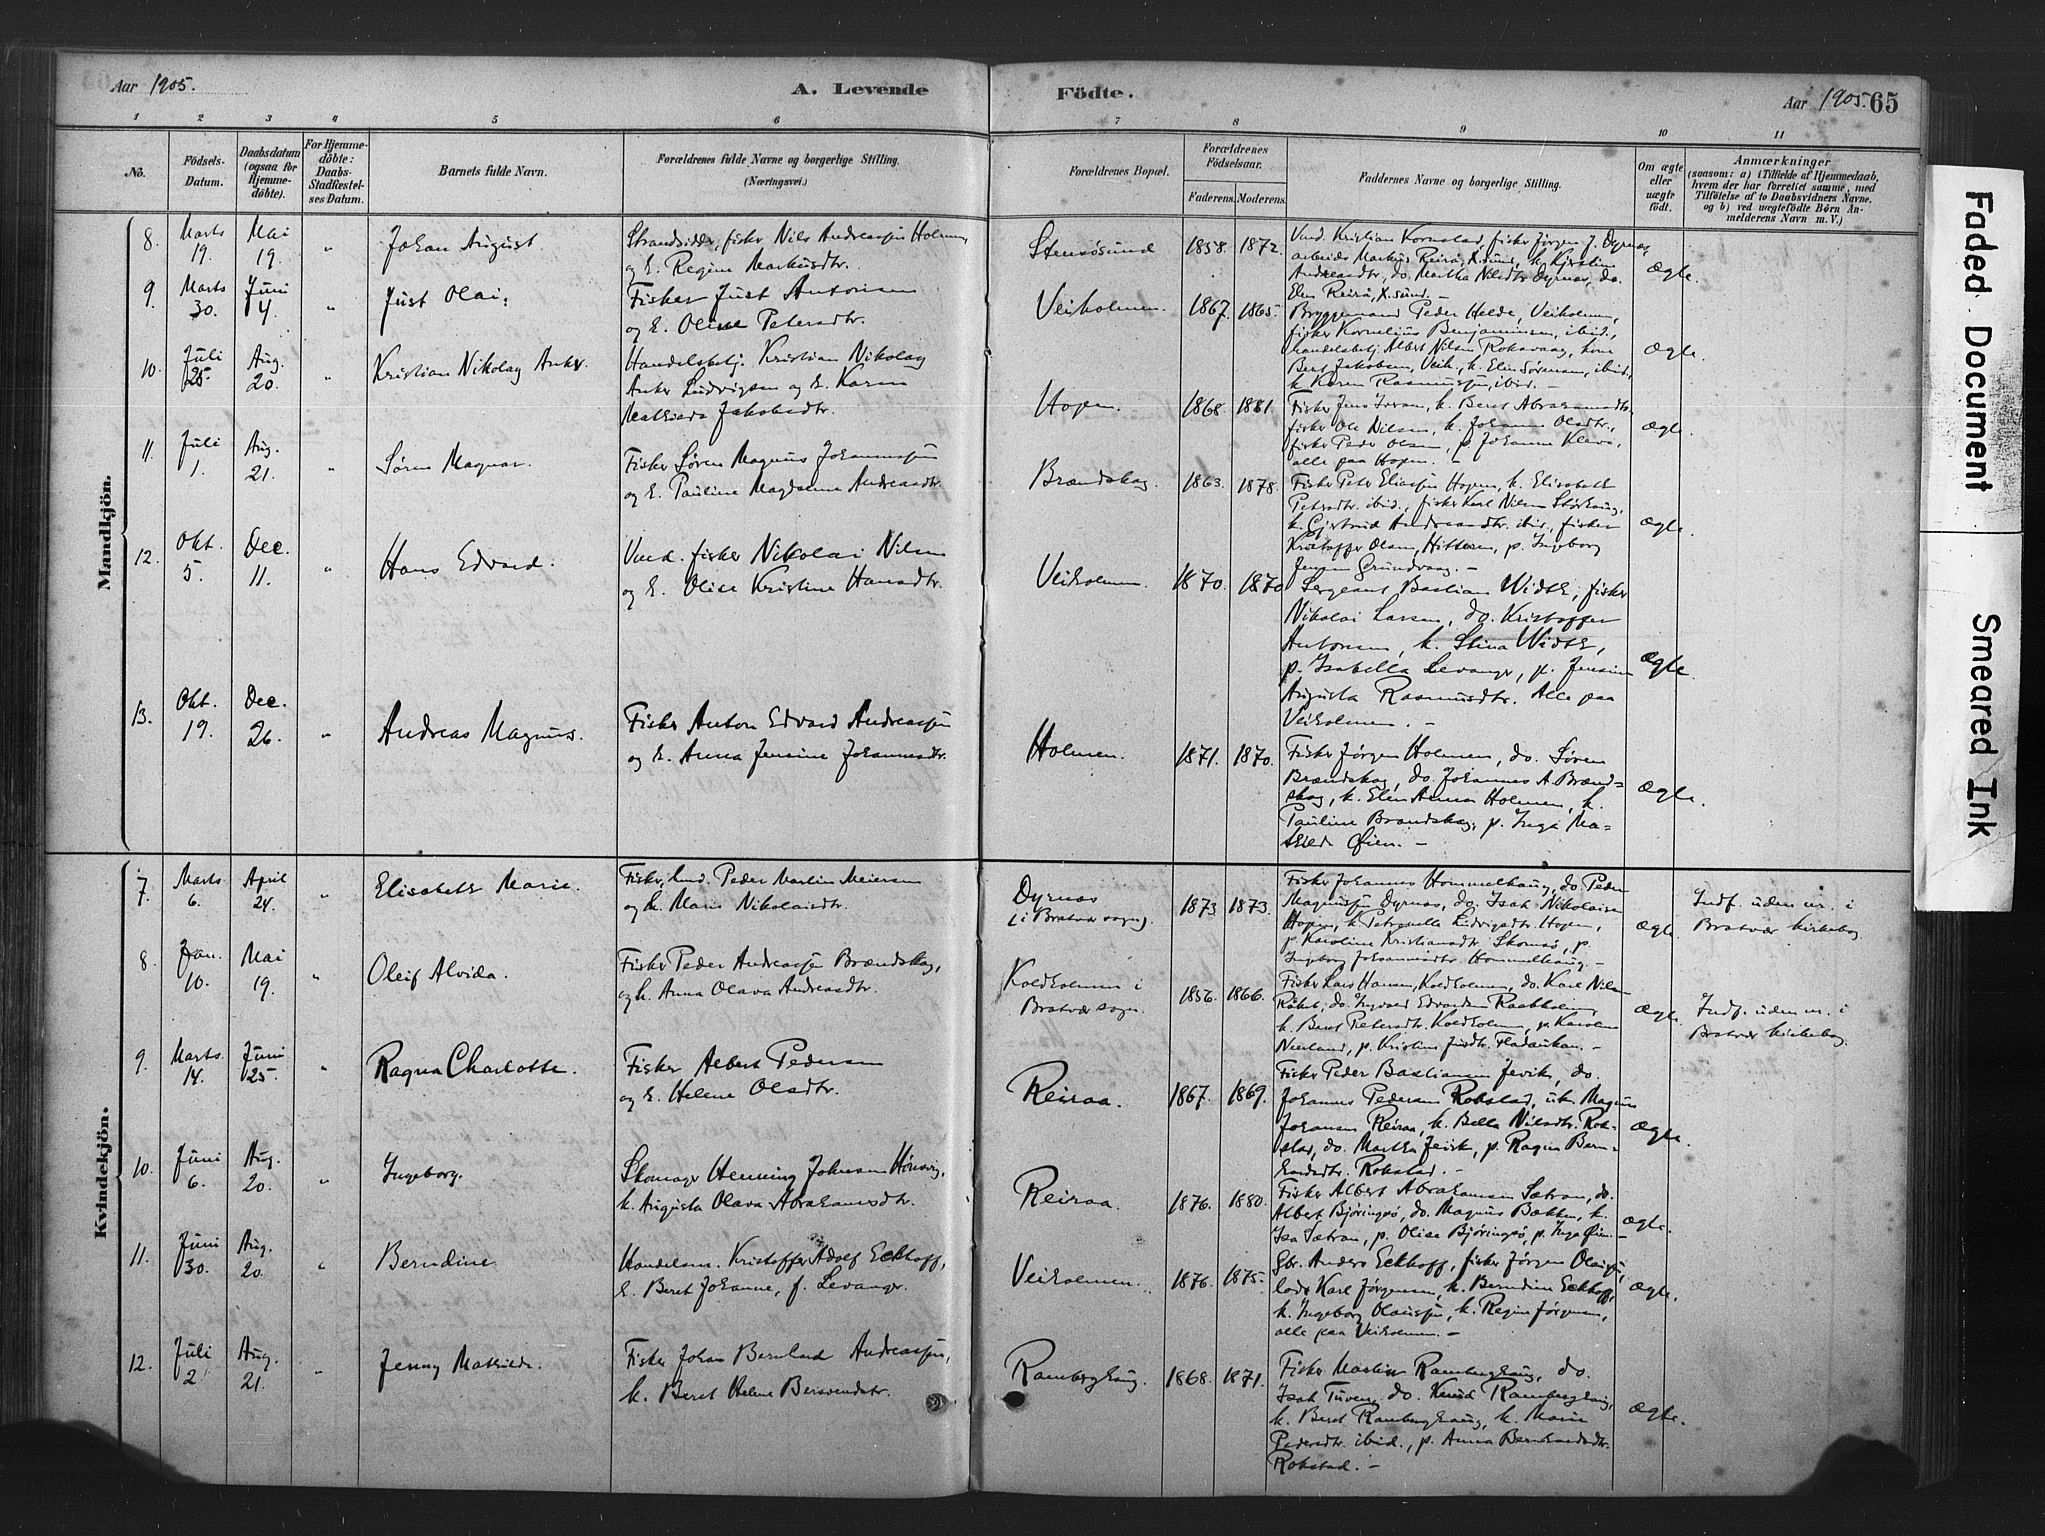 Aar 1905.
A. Levende Födte.
Aar 1905. 65
1 2 3 4 5 6 7 8 9 10 11
No.
Födsels-Datum.
Daabsdatum (ogsaa for Hjemmedöbte).
For Hjemmedöbte: Daabs-Stadfæstelses Datum.
Barnets fulde Navn.
Forældrenes fulde Navne og borgerlige Stilling. (Næringsvei.)
Forældrenes Bopæl.
Forældrenes Födselsaar.
Faderens. Moderens.
Faddernes Navne og borgerlige Stilling.
Om ægte eller uægte födt.
Anmærkninger
(saasom: a) i Tilfælde af Hjemmedaab, hvem der har forrettet samme, med Tilföielse af to Daabsvidners Navne. og b) ved uægtefödte Börn Anmelderens Navn m. V.)
Mandkjön.
8. Marts 19. Mai 19. " Johan August.
Strandsidder, fisker Nils Andreassen Holmen
og E. Regine Markusdtr.
Stensøsund 1858. 1872.
Ungk. Kristian Kornstad, fisker Jørgen J. Dyrnæs,
arbeider Markus Reirå, X.sund, k. Kjerstine
Andreasdtr., do. Martha Nilsdtr. Dyrnæs, do.
Elen Reirå, X.sund. –
Ægte.
9. Marts 30. Juni 4. " Just Olai.
Fisker Just Antonsen
og E. Oline Petersdtr.
Veiholmen. 1867. 1865.
Bryggemand Peder Helde, Veiholmen,
fisker Kornelius Benjaminsen, ibid.,
handelsbetj. Albert Nilsen, Roksvaag, kone
Beret Jakobsen, Veih., k. Elen Sørensen, ibid.,
k. Karen Rasmussen, ibid. –
Ægte.
10. Juli 25. Aug. 20. " Kristian Nikolay Anker.
Handelsbetj. Kristian Nikolay
Anker Ludvigsen og E. Karen
Mathea Jakobsdtr.
Hopen. 1868. 1881.
Fisker Jens Iversen, k. Beret Abrahamsdtr.
fisker Ole Nilsen, k. Johanna Olsdtr.,
fisker Peder Olsen, p. Johanna Kleva,
alle paa Hopen. –
Ægte.
11. Juli 1. Aug. 21. " Søren Magnar.
Fisker Søren Magnus Johannessen
og E. Pauline Magdalene Andreasdtr.
Brændskag. 1863. 1878.
Fisker Peter Eliassen Hopen, k. Elisabeth
Petersdtr. ibid., fisker Karl Nilsen
k. Gjertrud Andreasdtr. ibid., fisker
Kristoffer Olsen, Hitteren, p. Ingeborg
Jensen Grundvaag. –
Ægte.
12. Okt. 5. Dec. 11. " Hans Edvard.
fisker Nikolai Nilsen
og E. Olise Kristine Hansdtr.
Veiholmen. 1870. 1870
Sergeant Bastian Width, fisker
Nikolai Larsen, do. Kristoffer
Antonsen, k. Stina Width,
p. Isabella Levanger, p. Jensine
Augusta Rasmusdtr. Alle paa
Veiholmen. –
Ægte.
13. Okt. 19. Dec. 26. " Andreas Magnus.
Fisker Anton Edvard Andreassen
og E. Anna Jensine Johannesdtr.
Holmen. 1871. 1870.
Fisker Jørgen Holmen, do. Søren
Brændskag, do. Johannes A. Brænd=
skag, k. Elen Anna Holmen, k.
Pauline Brandskag, p. Inga Ma=
thilde Øien. –
Ægte.
Kvindekjön.
7. Marts 6. April 24. " Elisabeth Marie.
Fisker, Peder Martin Meiersen
og k. Marie Nikolaisdtr.
Dyrnæs (i Bratvær sogn). 1873 1873.
Fisker Johannes Hommelhaug, do. Peder
Magnussen Dyrnæs, do. Isak Nikolaisen
Hopen, k. Petronelle Ludvigsdtr. Hopen,
p. Karoline Kristiansdtr. Skomsø, p.
Ingeborg Johannesdtr. Hommelhaug. –
Ægte.
Indf. uden nr. i
Bratvær kirkebog.
8. Jan. 10. Mai 19. " Oleif Alvida.
Fisker Peder Andreassen Brændskag,
og k. Anna Olava Andreasdtr.
Koldholmen i
Bratvær sogn. 1856. 1866.
Fisker Lars Hansen, Koldholmen, do. Karl Nilsen
do. Ingvard Edvardsen
k. Beret Petersdtr. Koldholmen, p. Karoline
p. Kristine
Ægte.
Indf. uden nr. i
Bratvær kirkebog.
9. Marts 14. Juni 25. " Ragna Charlotte.
Fisker Albert Pedersen
og E. Helene Olsdtr.
Reiraa. 1867. 1869.
Fisker Peder Bastiansen Jevik, do.
Johannes Pedersen Rokstad, Magnus
Johansen Reiraa, k. Bella Nilsdtr. Rok=
stad, do. Martha Jevik, p. Ragna Bern=
hardsdtr. Rokstad. –
Ægte.
10. Juni 6. Aug. 20. " Ingeborg.
Skomager Henning Johnsen Hønsvig,
k. Augusta Olava Abrahamsdtr.
Reiraa. 1876. 1880.
Fisker Albert Abrahamsen Sætran, do.
Albert Bjøringsø, do. Magnus Bækken, k.
Isa Sætran, p. Olise Bjøringsø, p. Inga Øien. –
Ægte.
11. Juni 30. Aug. 20. " Berndine
Handelsm. Kristoffer Adolf Eckhoff,
E. Beret Johanne, f. Levanger.
Veiholmen. 1876. 1875.
Gbr. Anders Eckhoff, fisker Jørgen Olaussen,
lods Karl Jørgensen, k. Berndine Eckhoff,
k. Ingeborg Olaussen, k. Regine Jørgensen,
alle paa Veiholmen. –
Ægte.
12. Juli 2. Aug. 21. " Jenny Mathilde.
Fisker Johan Bernhard Andreassen,
k. Beret Helene Berntsendtr.
Ramberghaug. 1868. 1871.
Fisker Martin Ramberghaug, do.
Isak Tuven, do. Knud Ramberghaug,
k. Beret Ramberghaug, k. Marie
Pedersdtr. ibid., p. Anna Bernhardsdtr.
Rokstad. –
Ægte.
Faded Document
Smeared Ink